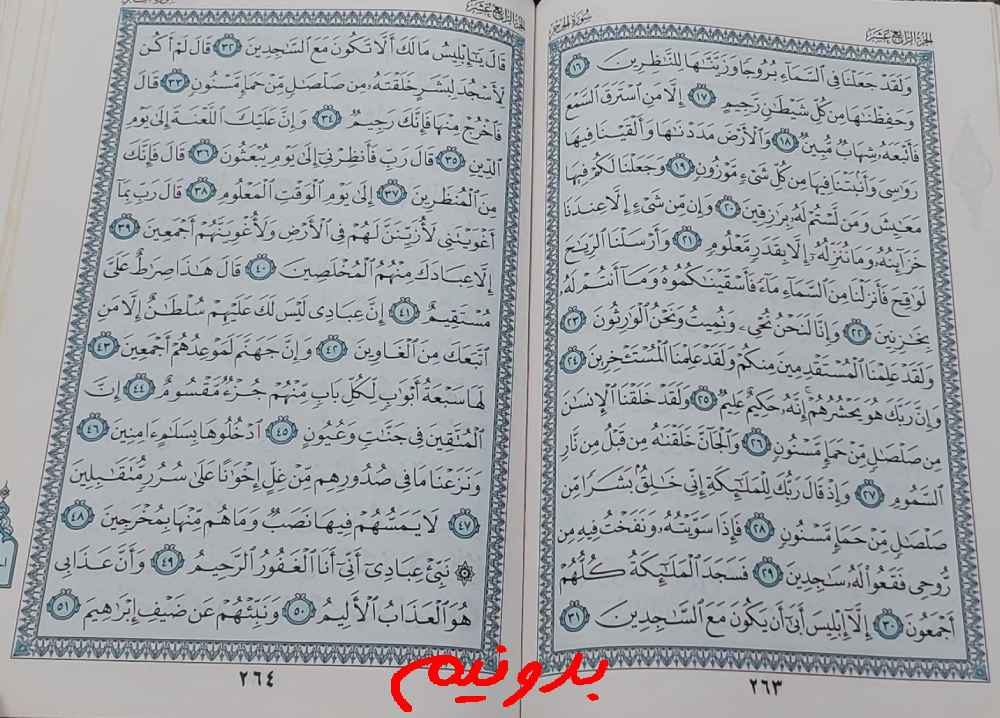 الجزء الرابع عشر
سورة الحجر
وَلَقَدْ جَعَلْنَا فِي السَّمَاءِ بُرُوجًا وَزَيَّنَّاهَا لِلنَّاظِرِينَ ١٦
وَحَفِظْنَاهَا مِن كُلِّ شَيْطَانٍ رَّجِيمٍ ١٧ إِلَّا مَنِ اسْتَرَقَ السَّمْعَ
فَأَتْبَعَهُ شِهَابٌ مُّبِينٌ ١٨ وَالْأَرْضَ مَدَدْنَاهَا وَأَلْقَيْنَا فِيهَا
رَوَاسِيَ وَأَنبَتْنَا فِيهَا مِن كُلِّ شَيْءٍ مَّوْزُونٍ ١٩ وَجَعَلْنَا لَكُمْ فِيهَا
مَعَايِشَ وَمَن لَّسْتُمْ لَهُ بِرَازِقِينَ ٢٠ وَإِن مِّن شَيْءٍ إِلَّا عِندَنَا
خَزَائِنُهُ وَمَا نُنَزِّلُهُ إِلَّا بِقَدَرٍ مَّعْلُومٍ ٢١ وَأَرْسَلْنَا الرِّيَاحَ
لَوَاقِحَ فَأَنزَلْنَا مِنَ السَّمَاءِ مَاءً فَأَسْقَيْنَاكُمُوهُ وَمَا أَنتُمْ لَهُ
بِخَازِنِينَ ٢٢ وَإِنَّا لَنَحْنُ نُحْيِي وَنُمِيتُ وَنَحْنُ الْوَارِثُونَ ٢٣
وَلَقَدْ عَلِمْنَا الْمُسْتَقْدِمِينَ مِنكُمْ وَلَقَدْ عَلِمْنَا الْمُسْتَأْخِرِينَ ٢٤
وَإِنَّ رَبَّكَ هُوَ يَحْشُرُهُمْ إِنَّهُ حَكِيمٌ عَلِيمٌ ٢٥ وَلَقَدْ خَلَقْنَا الْإِنسَانَ
مِن صَلْصَالٍ مِّنْ حَمَإٍ مَّسْنُونٍ ٢٦ وَالْجَانَّ خَلَقْنَاهُ مِن قَبْلُ مِن نَّارِ
السَّمُومِ ٢٧ وَإِذْ قَالَ رَبُّكَ لِلْمَلَائِكَةِ إِنِّي خَالِقٌ بَشَرًا مِّن
صَلْصَالٍ مِّنْ حَمَإٍ مَّسْنُونٍ ٢٨ فَإِذَا سَوَّيْتُهُ وَنَفَخْتُ فِيهِ مِن
رُّوحِي فَقَعُوا لَهُ سَاجِدِينَ ٢٩ فَسَجَدَ الْمَلَائِكَةُ كُلُّهُمْ
أَجْمَعُونَ ٣٠ إِلَّا إِبْلِيسَ أَبَىٰ أَن يَكُونَ مَعَ السَّاجِدِينَ ٣١
٢٦٣
الجزء الرابع عشر
قَالَ يَا إِبْلِيسُ مَا لَكَ أَلَّا تَكُونَ مَعَ السَّاجِدِينَ ٣٢ قَالَ لَمْ أَكُن
لِّأَسْجُدَ لِبَشَرٍ خَلَقْتَهُ مِن صَلْصَالٍ مِّنْ حَمَإٍ مَّسْنُونٍ ٣٣ قَالَ
فَاخْرُجْ مِنْهَا فَإِنَّكَ رَجِيمٌ ٣٤ وَإِنَّ عَلَيْكَ اللَّعْنَةَ إِلَىٰ يَوْمِ
الدِّينِ ٣٥ قَالَ رَبِّ فَأَنظِرْنِي إِلَىٰ يَوْمِ يُبْعَثُونَ ٣٦ قَالَ فَإِنَّكَ
مِنَ الْمُنظَرِينَ ٣٧ إِلَىٰ يَوْمِ الْوَقْتِ الْمَعْلُومِ ٣٨ قَالَ رَبِّ بِمَا
أَغْوَيْتَنِي لَأُزَيِّنَنَّ لَهُمْ فِي الْأَرْضِ وَلَأُغْوِيَنَّهُمْ أَجْمَعِينَ ٣٩
إِلَّا عِبَادَكَ مِنْهُمُ الْمُخْلَصِينَ ٤٠ قَالَ هَٰذَا صِرَاطٌ عَلَيَّ
مُسْتَقِيمٌ ٤١ إِنَّ عِبَادِي لَيْسَ لَكَ عَلَيْهِمْ سُلْطَانٌ إِلَّا مَنِ
اتَّبَعَكَ مِنَ الْغَاوِينَ ٤٢ وَإِنَّ جَهَنَّمَ لَمَوْعِدُهُمْ أَجْمَعِينَ ٤٣
لَهَا سَبْعَةُ أَبْوَابٍ لِّكُلِّ بَابٍ مِّنْهُمْ جُزْءٌ مَّقْسُومٌ ٤٤ إِنَّ
الْمُتَّقِينَ فِي جَنَّاتٍ وَعُيُونٍ ٤٥ ادْخُلُوهَا بِسَلَامٍ آمِنِينَ ٤٦
وَنَزَعْنَا مَا فِي صُدُورِهِم مِّنْ غِلٍّ إِخْوَانًا عَلَىٰ سُرُرٍ مُّتَقَابِلِينَ
٤٧ لَا يَمَسُّهُمْ فِيهَا نَصَبٌ وَمَا هُم مِّنْهَا بِمُخْرَجِينَ ٤٨
۞ نَبِّئْ عِبَادِي أَنِّي أَنَا الْغَفُورُ الرَّحِيمُ ٤٩ وَأَنَّ عَذَابِي
هُوَ الْعَذَابُ الْأَلِيمُ ٥٠ وَنَبِّئْهُمْ عَن ضَيْفِ إِبْرَاهِيمَ ٥١
٢٦٤
بدونيم